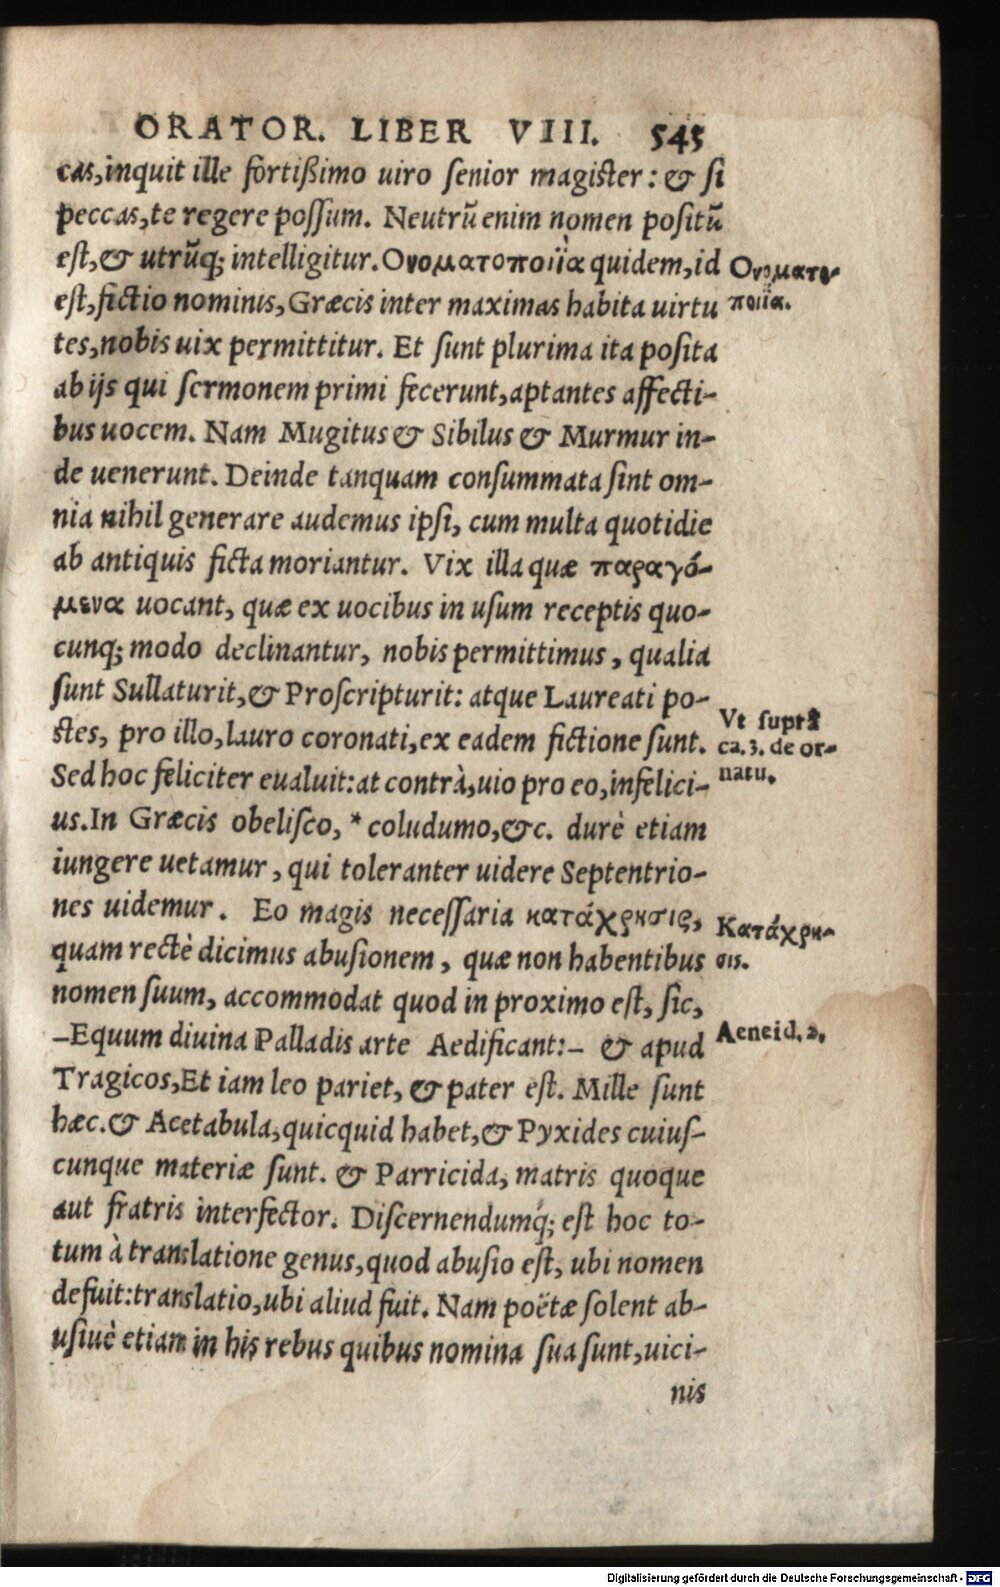 ORATOR. LIBER VIII. 545
cas,inquit ille fortißimo uiro ſenior magiſter: & ſi
peccas,te regere poſſum. Neutrũ enim nomen poſitũ
eſt,& utrũq; intelligitur. Ονοματοποιΐα quidem,id
Ονοματο-
ποιΐα.
eſt,fictio nominis,Græcis inter maximas habita uirtu
tes,nobis uix permittitur. Et ſunt plurima ita poſita
ab ijs qui ſermonem primi fecerunt,aptantes affecti-
bus uocem. Nam Mugitus & Sibilus & Murmur in-
de uenerunt. Deinde tanquam conſummata ſint om-
nia nihil generare audemus ipſi, cum multa quotidie
ab antiquis ficta moriantur. Vix illa quæ παραγό-
μενα uocant, quæ ex uocibus in uſum receptis quo-
cunq; modo declinantur, nobis permittimus, qualia
ſunt Sullaturit,& Proſcripturit: atque Laureati po-
ſtes, pro illo,lauro coronati,ex eadem fictione ſunt.
Vt ſuprà
ca.3. de or-
natu.
Sed hoc feliciter eualuit:at contrà,uio pro eo,infelici-
us.In Græcis obeliſco, * coludumo,&c. durè etiam
iungere uetamur, qui toleranter uidere Septentrio-
nes uidemur. Eo magis neceſſaria κατάχρησις,
Κατάχρη-
σις.
quam rectè dicimus abuſionem, quæ non habentibus
nomen ſuum, accommodat quod in proximo eſt, ſic,
–Equum diuina Palladis arte Aedificant:– & apud
Aeneid. 2.
Tragicos,Et iam leo pariet, & pater eſt. Mille ſunt
hæc.& Acetabula,quicquid habet,& Pyxides cuiuſ-
cunque materiæ ſunt. & Parricida, matris quoque
aut fratris interfector. Diſcernendumq́; eſt hoc to-
tum à translatione genus,quod abuſio eſt, ubi nomen
defuit:translatio,ubi aliud fuit. Nam poëtæ ſolent ab-
uſiuè etiam in his rebus quibus nomina ſua ſunt,uici-
nis
Digitalisierung gefördert durch die Deutsche Forschungsgemeinschaft - DFG